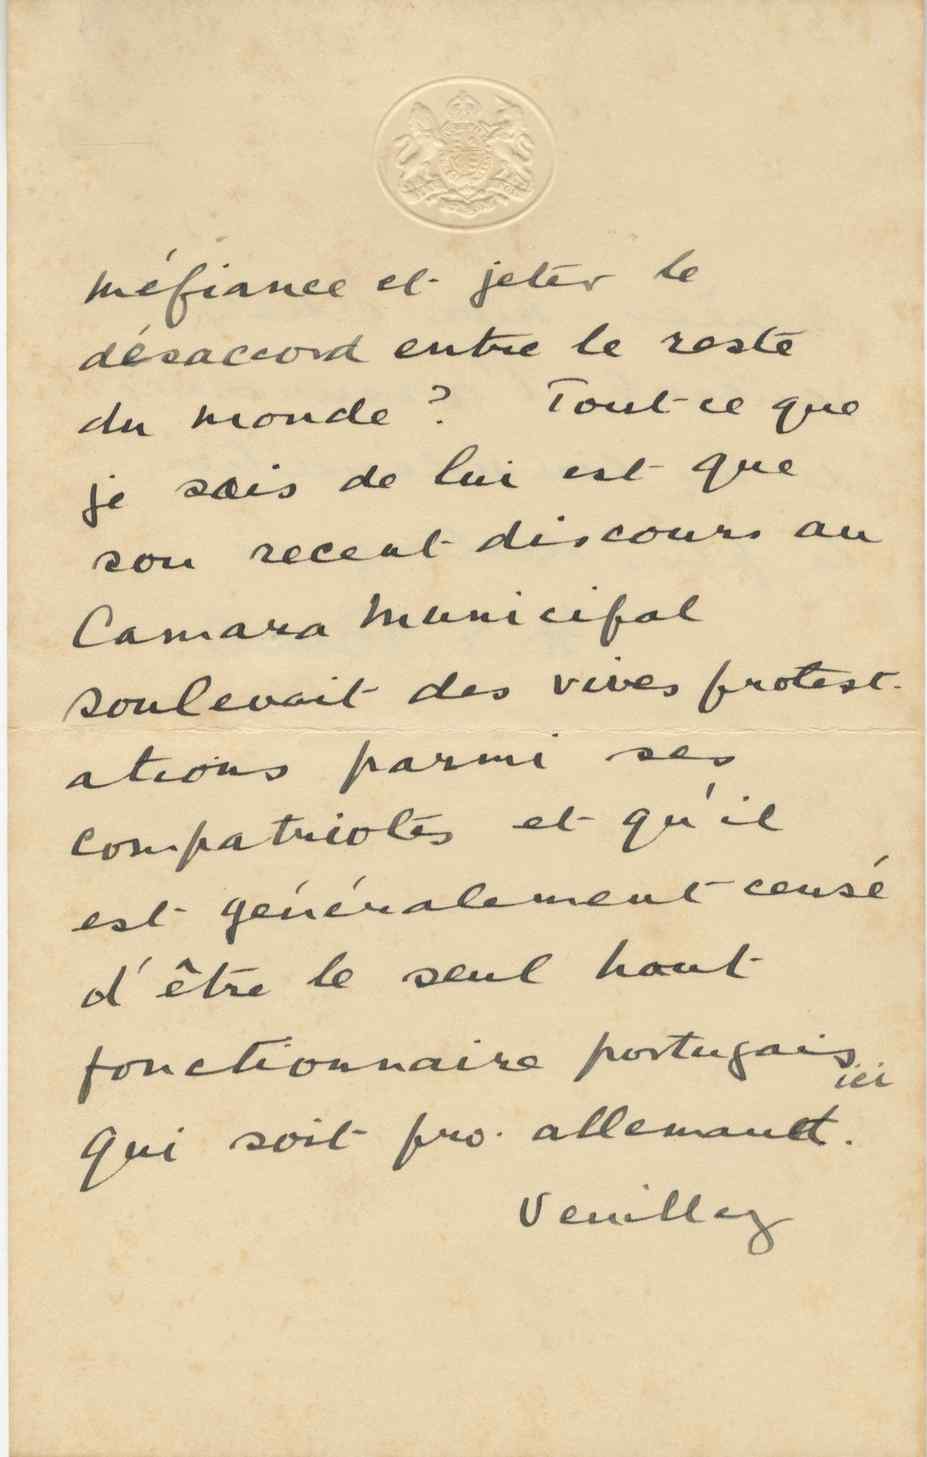 méfiance et jeter le
désaccord entre le reste
du monde ? Tout ce que
je sais de lui est que
son recent discours au
Camara Municipal
soulevait des vives protest-
ations parmi ses
compatriotes et qu'il
est généralement censé
d'être le seul haut
fonctionnaire portugais
ici
qui soit pro-allemand.
Veuillez